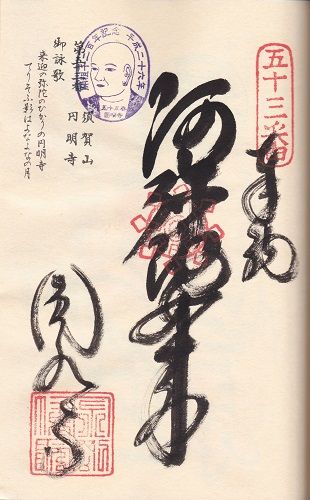 五十三番
奉納
阿弥陀如来
圓明寺
須賀山
円明寺
御詠歌
来迎の弥陀のひかりの円明寺
てりそふ影はよなよなの月